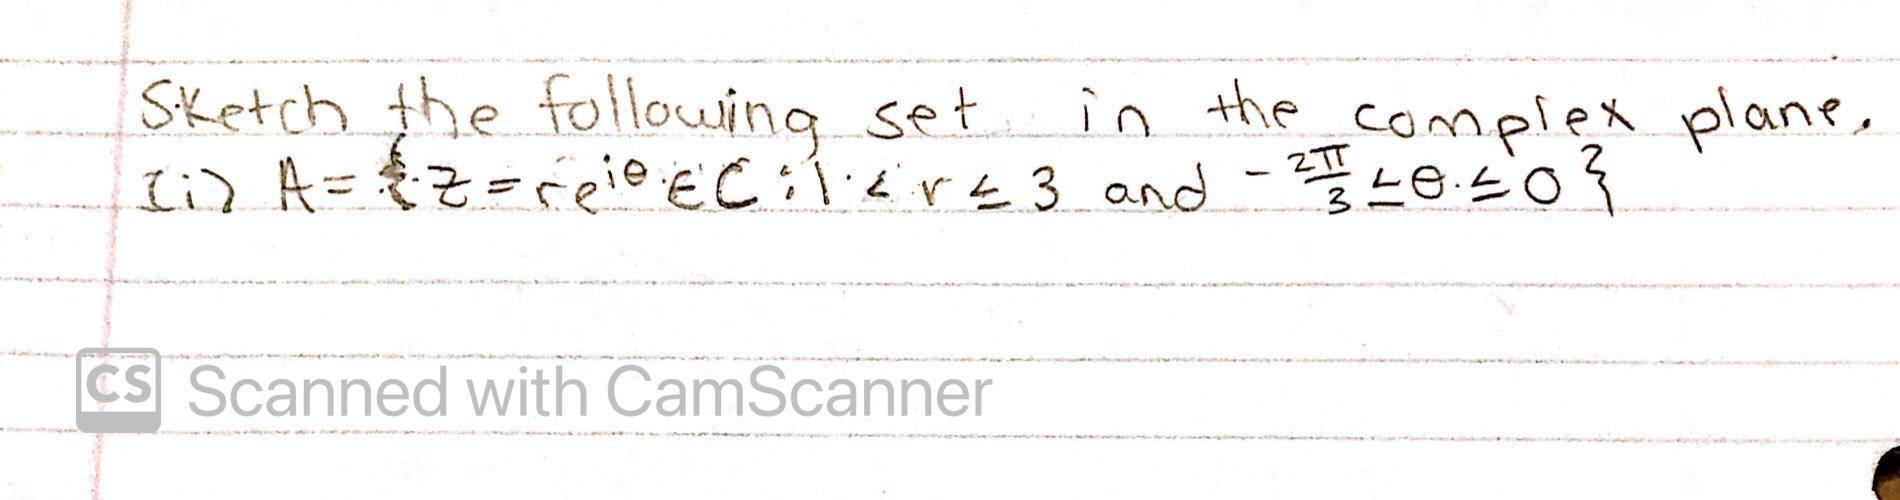 Sketch the following set in the complex plane.
(i) A = { z = re^{iθ} ∈ C : 1 < r ≤ 3 and -2π/3 ≤ θ ≤ 0 }
CS Scanned with CamScanner